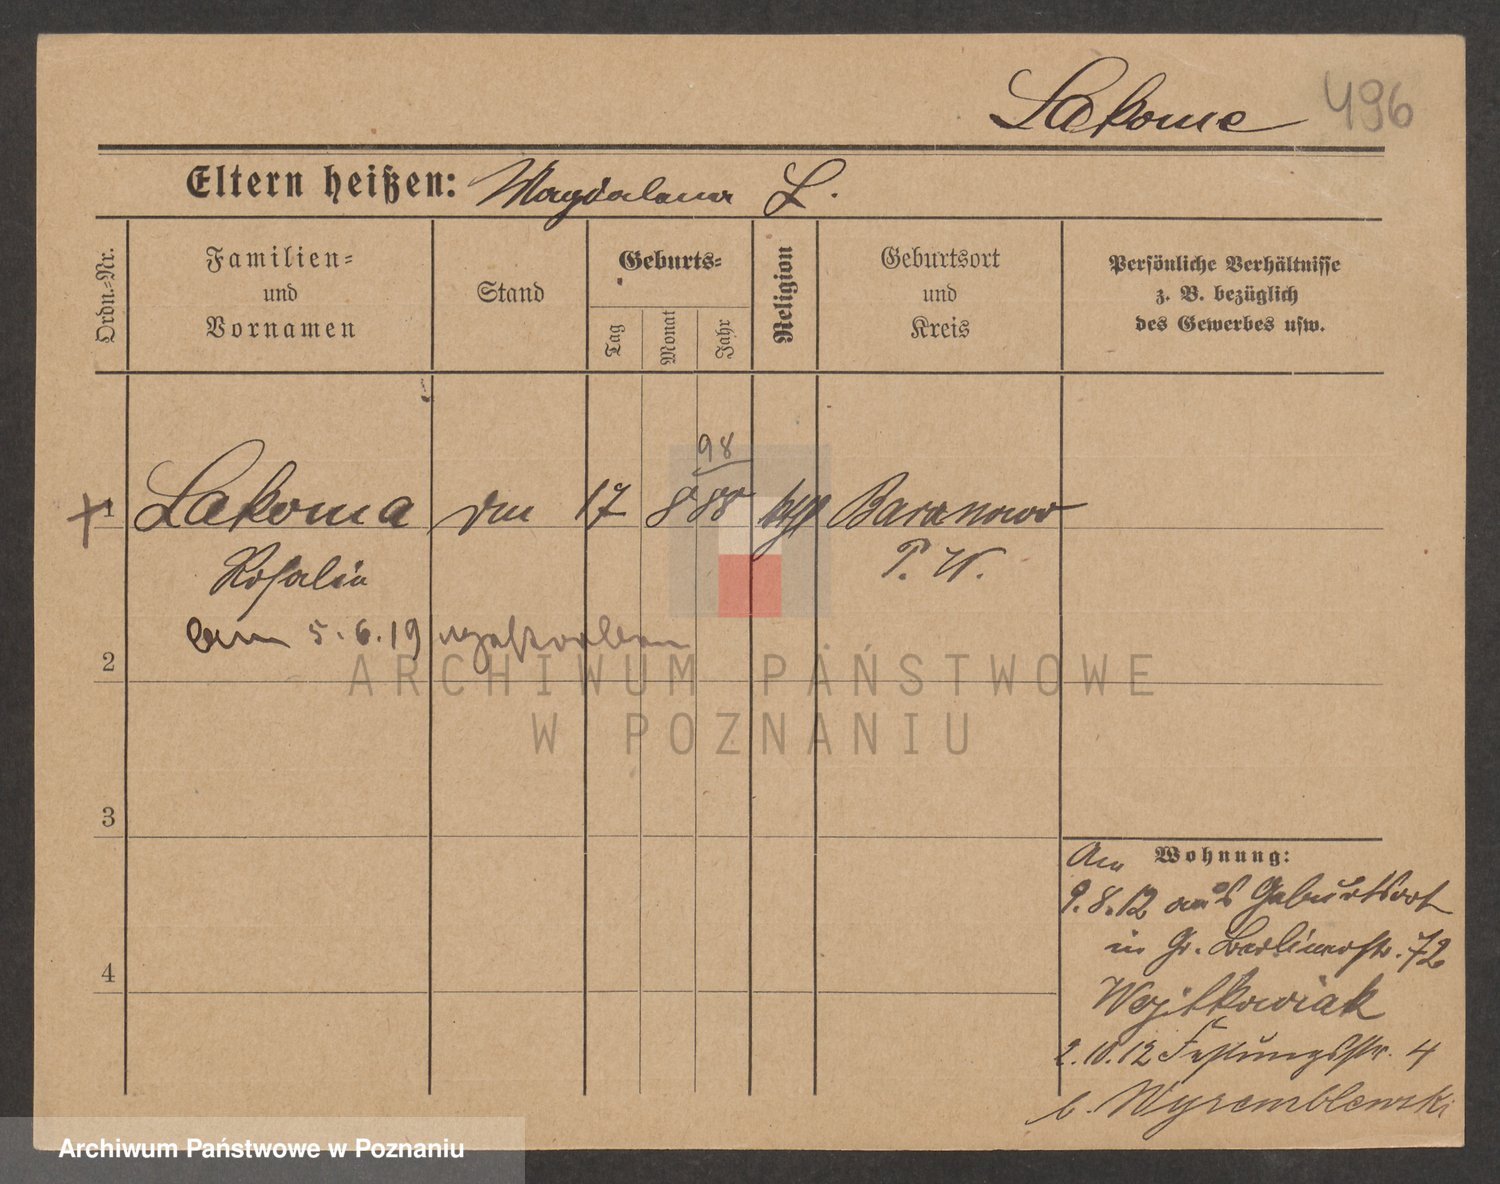 Lakome 496
Eltern heißen: Magdalena L.
Ordn.-Nr.
Familien-
und
Vornamen
Stand
Geburts-
Tag
Monat
Jahr
Religion
Geburtsort
und
Kreis
Persönliche Verhältnisse
z. B. bezüglich
des Gewerbes usw.
98
1 Lakoma 17 8 88 Baranowo
Rosalia P. W.
am 5.6.19 gestorben
2
3
4
Wohnung:
Am
9.8.12 aus Geburtsort
in Gr. Berlinerstr. 72
Wojtkowiak
2.10.12 Festungsstr. 4
b. Wyremblewski
ARCHIWUM PAŃSTWOWE
W POZNANIU
Archiwum Państwowe w Poznaniu